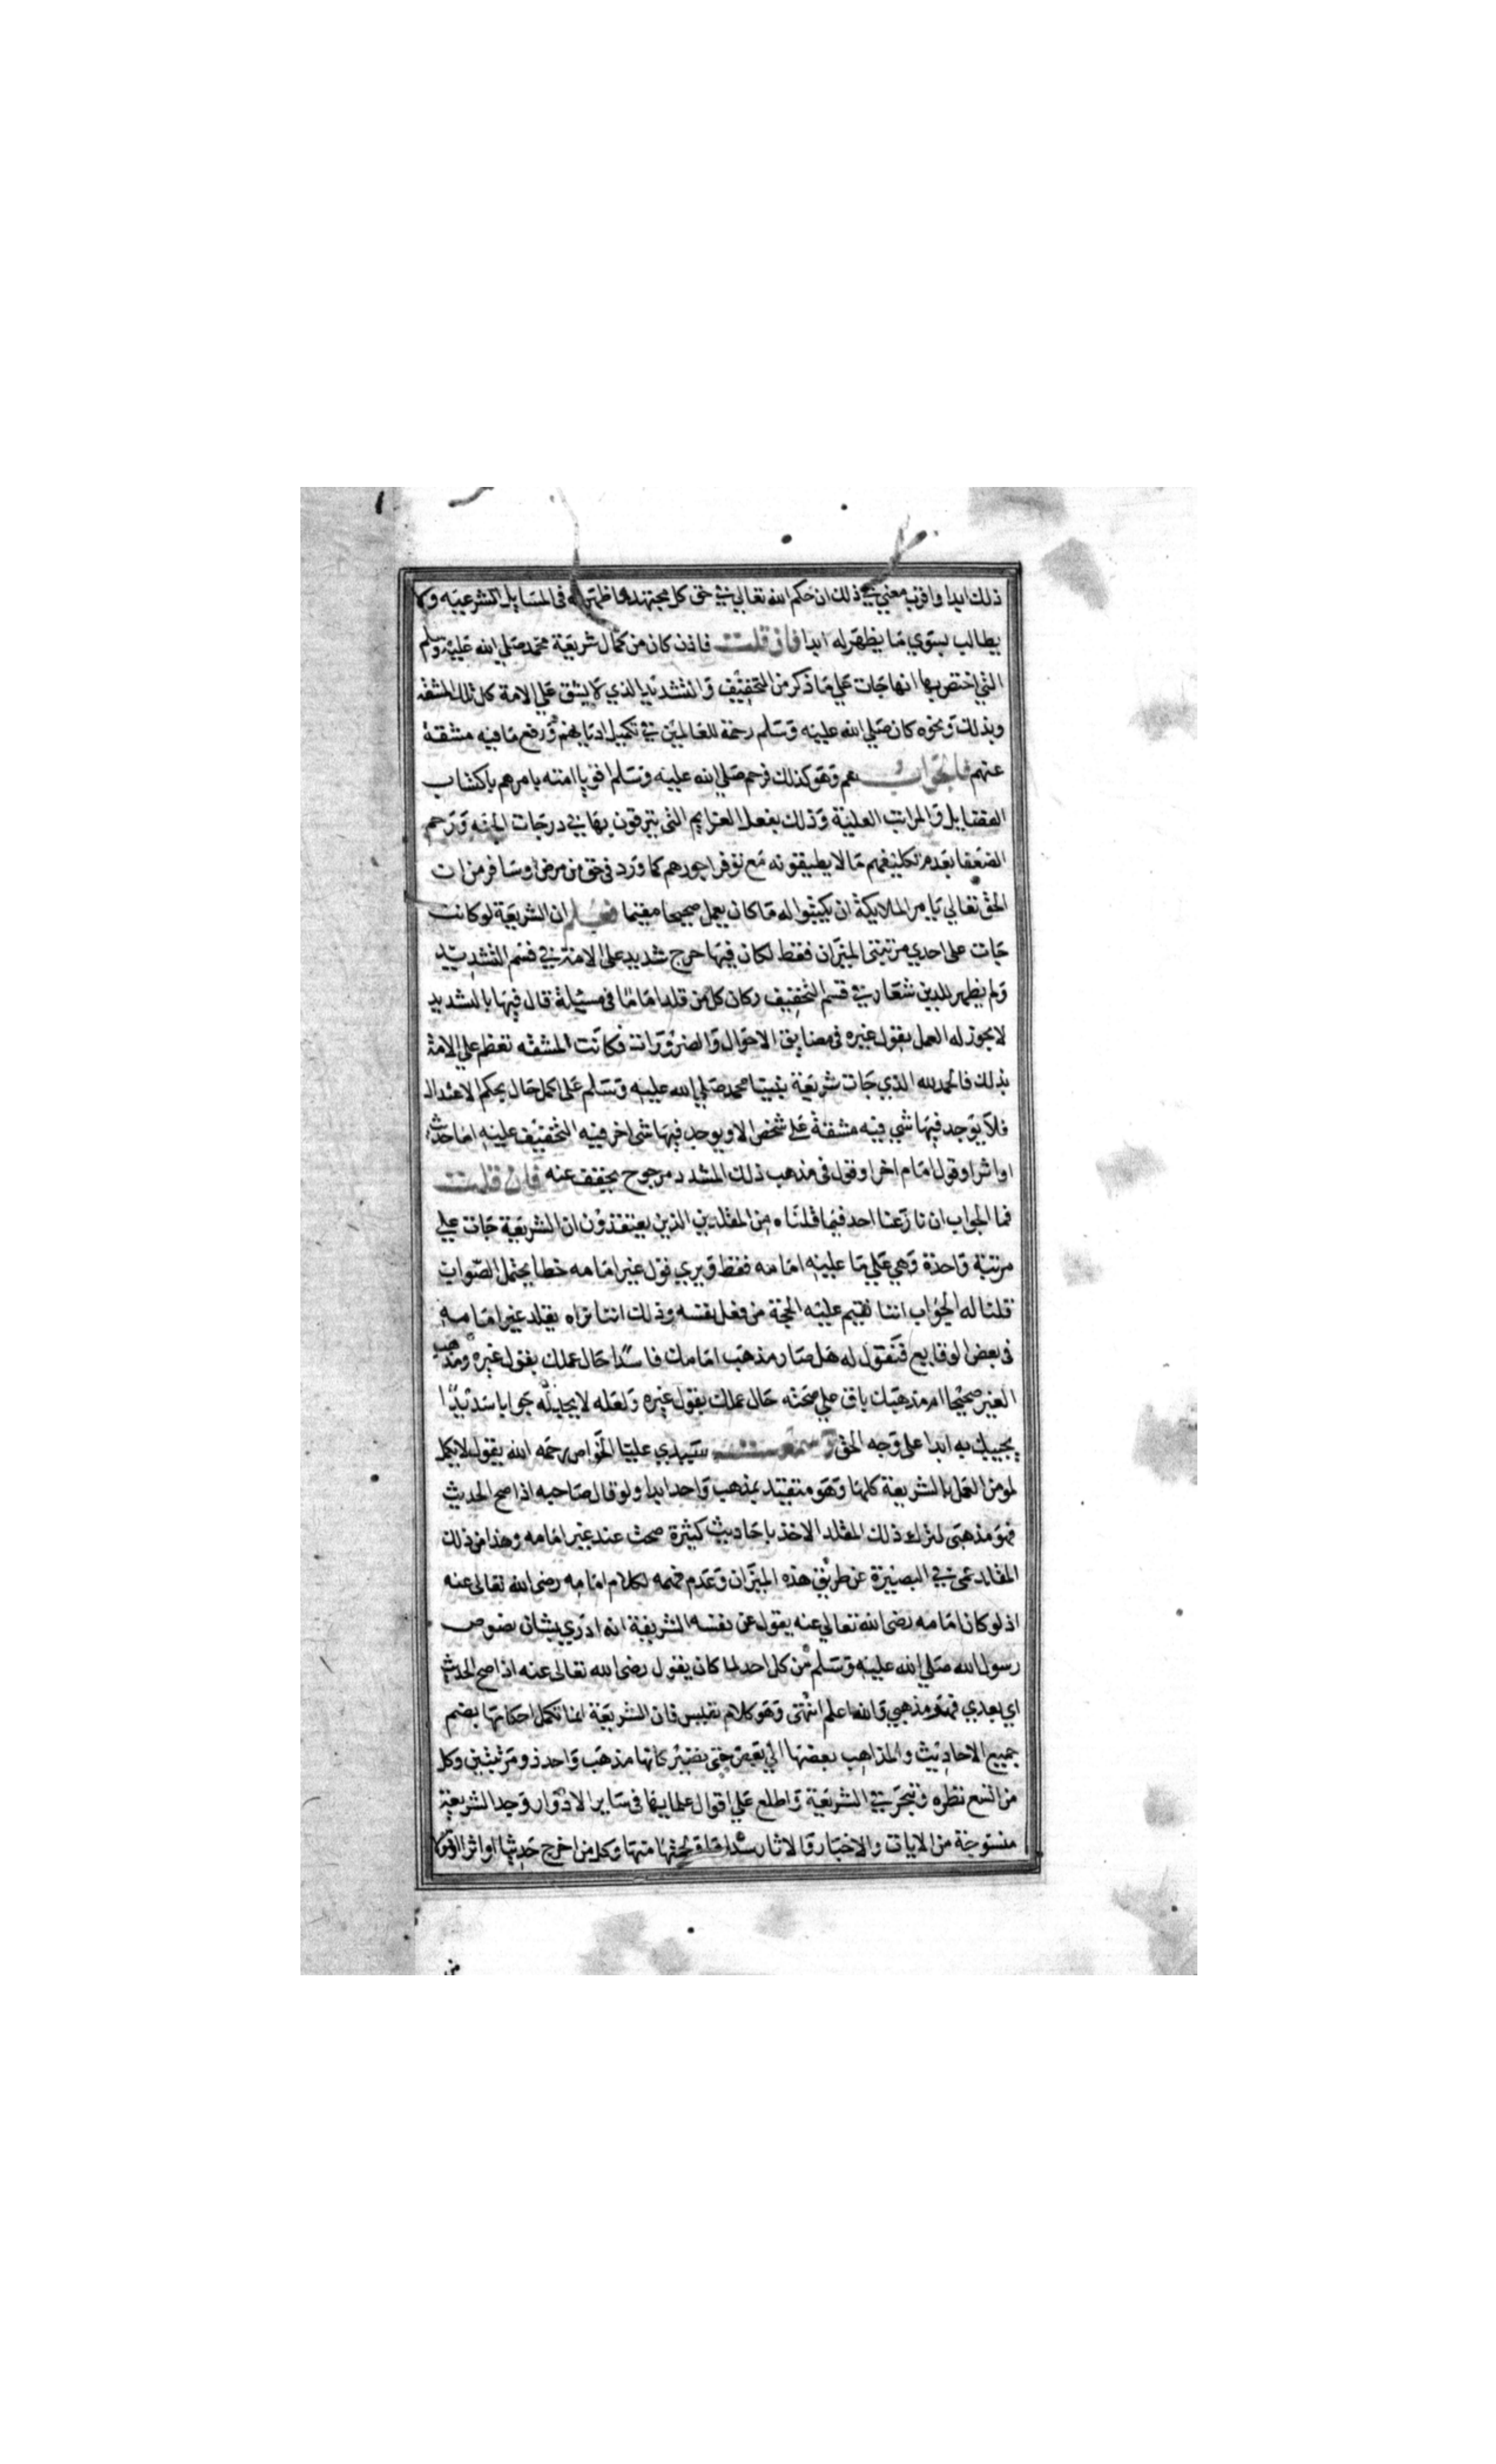 ذلك ابدا واقرب معني في ذلك ان حكم الله تعالي في حق كل مجتهد ما ظهر له في المسايل الشرعيه ولا
يطالب بسوي ما يظهر له ابدا فان قلت فاذن كان من كمال شريعة محمد صلي الله عليه وسلم
التي اختص بها انها جات علي ما ذكر من التخفيف والتشديد الذي لا يشق علي الامة كل تلك المشقه
وبذلك ونحوه كان صلي الله عليه وسلم رحمة للعالمين في تكميل اديانهم ورفع ما فيه مشقة
عنهم فالجواب نعم وهو كذلك فرحم صلي الله عليه وسلم اقويا امته بامرهم باكتساب
الفضايل والمراتب العلية وذلك بفعل العزايم التي يترقون بها في درجات الجنه ورحم
الضعفا بعدم تكليفهم ما لا يطيقونه مع توفر اجورهم كما ورد في حق من مرض او سافر من ان
الحق تعالي يامر الملايكة ان يكتبوا له ما كان يعمل صحيحا مقيما فعلم ان الشريعة لو كانت
جات علي احدي مرتبتي الميزان فقط لكان فيها حرج شديد علي الامة في قسم التشديد
ولم يظهر للدين شعار في قسم التخفيف وكان كل من قلد اماما في مسيلة قال فيها بالتشديد
لا يجوز له العمل بقول غيره في مضايق الاحوال والضرورات فكانت المشقه تعظم علي الامة
بذلك فالحمد لله الذي جات شريعة نبينا محمد صلي الله عليه وسلم علي اكمل حال بحكم الاعتدال
فلا يوجد فيها شي فيه مشقة علي شخص الا ويوجد فيها شي اخر فيه التخفيف عليه اما حديث
او اثر او قول امام اخر او قول في مذهب ذلك المشدد مرجوح يخفف عنه فان قلت
فما الجواب ان نازعنا احد فيما قلناه من المقلدين الذين يعتقدون ان الشريعة جات علي
مرتبة واحدة وهي علي ما عليه امامه فقط ويري قول غير امامه خطا يحتمل الصواب
قلنا له الجواب اننا نقيم عليه الحجة من فعل نفسه وذلك اننا نراه يقلد غير امامه
في بعض الوقايع فنقول له هل صار مذهب امامك فاسدا حال عملك بقول غيره ومذهب
الغير صحيحا ام مذهبك باق علي صحته حال عملك بقول غيره ولعله لا يجد له جوابا سديدا
يجيبك به ابدا علي وجه الحق وسمعت سيدي عليا الخواص رحمه الله يقول لا يكمل
لمومن العمل بالشريعة كلها وهو متقيد بمذهب واحد ابدا ولو قال صاحبه اذا صح الحديث
فهو مذهبي لترك ذلك المقلد الاخذ باحاديث كثيرة صحت عند غير امامه وهذا من ذلك
المقلد عمي في البصيرة عن طريق هذه الميزان وعدم فهمه لكلام امامه رضي الله تعالي عنه
اذ لو كان امامه رضي الله تعالي عنه يقول عن نفسه الشريفة انه ادري بشان نصوص
رسول الله صلي الله عليه وسلم من كل احد لما كان يقول رضي الله تعالي عنه اذا صح الحديث
اي بعدي فهو مذهبي والله اعلم انتهي وهو كلام نفيس فان الشريعة انما تكمل احكامها بضم
جميع الاحاديث والمذاهب بعضها الي بعض حتي تصير كانها مذهب واحد ذو مرتبتين وكل
من اتسع نظره وتبحر في الشريعة واطلع علي اقوال علمايها في ساير الادوار وجد الشريعة
منسوجة من الايات والاخبار والاثار سداها ولحمتها منها وكل من اخرج حديثا او اثرا او قولا
من